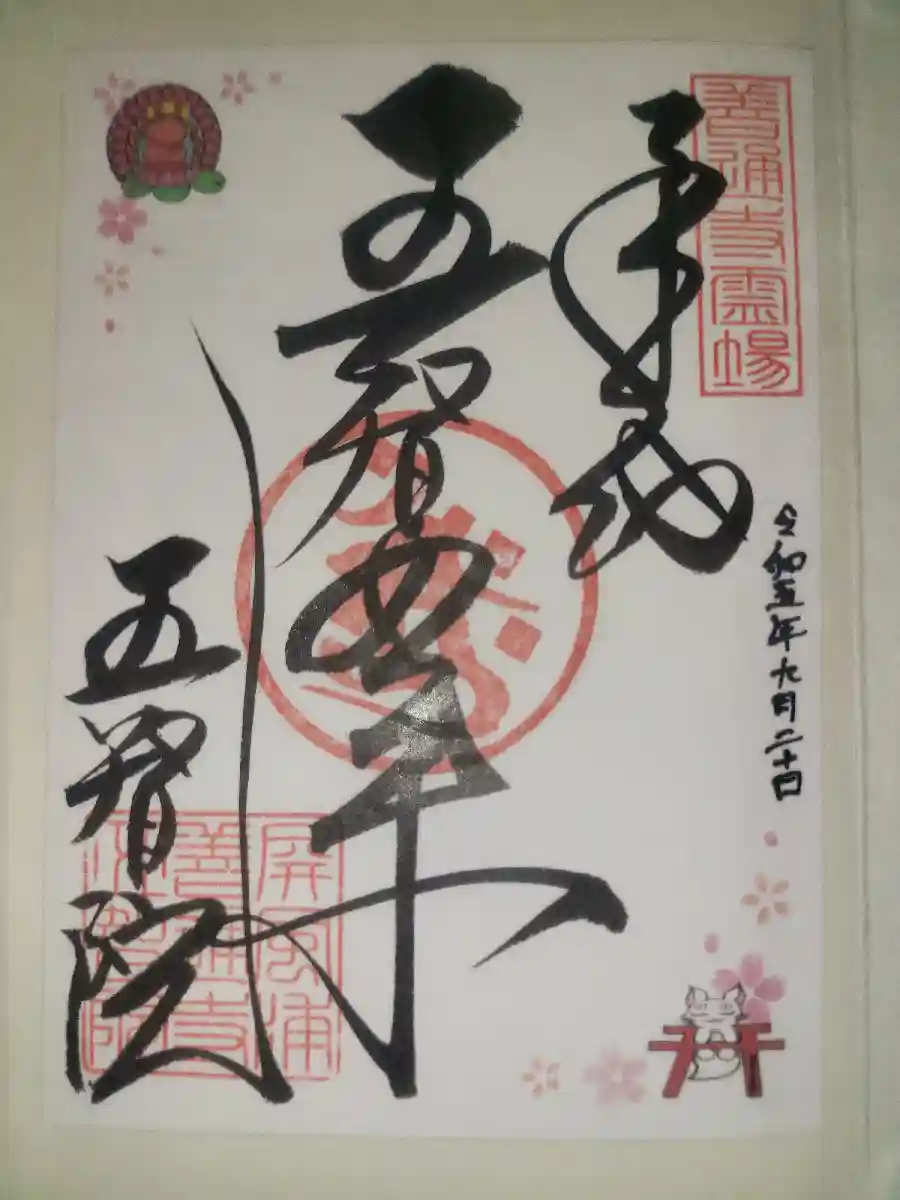 善通寺霊場
令和五年九月二十日
五智如来
五智院
屏風浦
善通寺